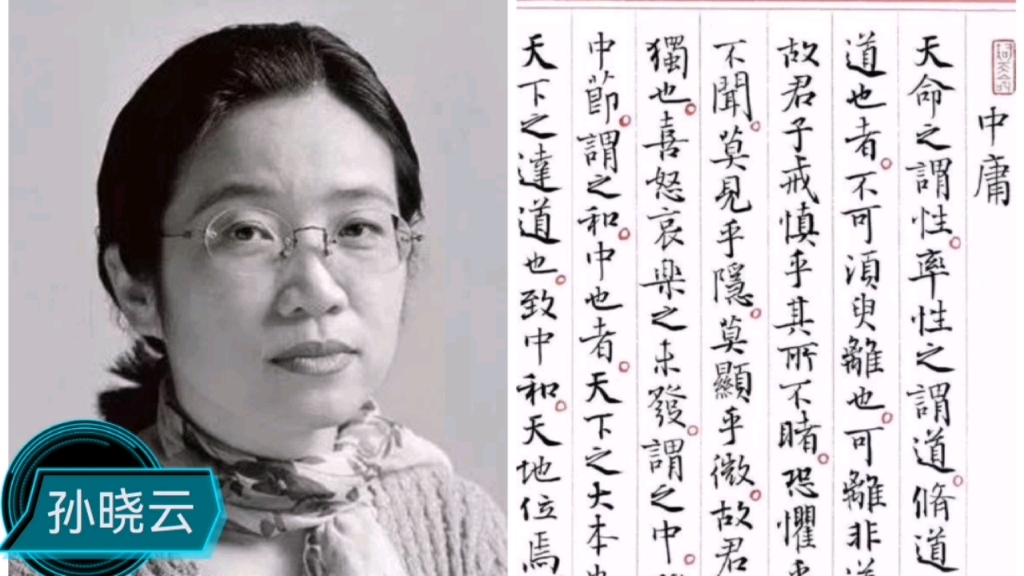 孙晓云
中庸
天命之謂性。率性之謂道。脩道
道也者。不可須臾離也。可離非
故君子戒慎乎其所不睹。恐懼
不聞。莫見乎隱。莫顯乎微。故君
獨也。喜怒哀樂之未發。謂之中。
中節。謂之和。中也者。天下之大本
天下之達道也。致中和。天地位焉